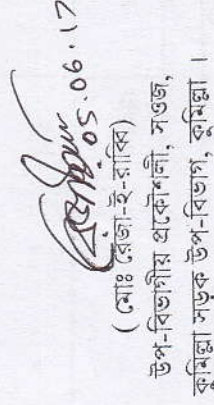 05.06.17
( মোঃ রেজা-ই-রাব্বি )
উপ-বিভাগীয় প্রকৌশলী, সওজ,
কুমিল্লা সড়ক উপ-বিভাগ, কুমিল্লা ।